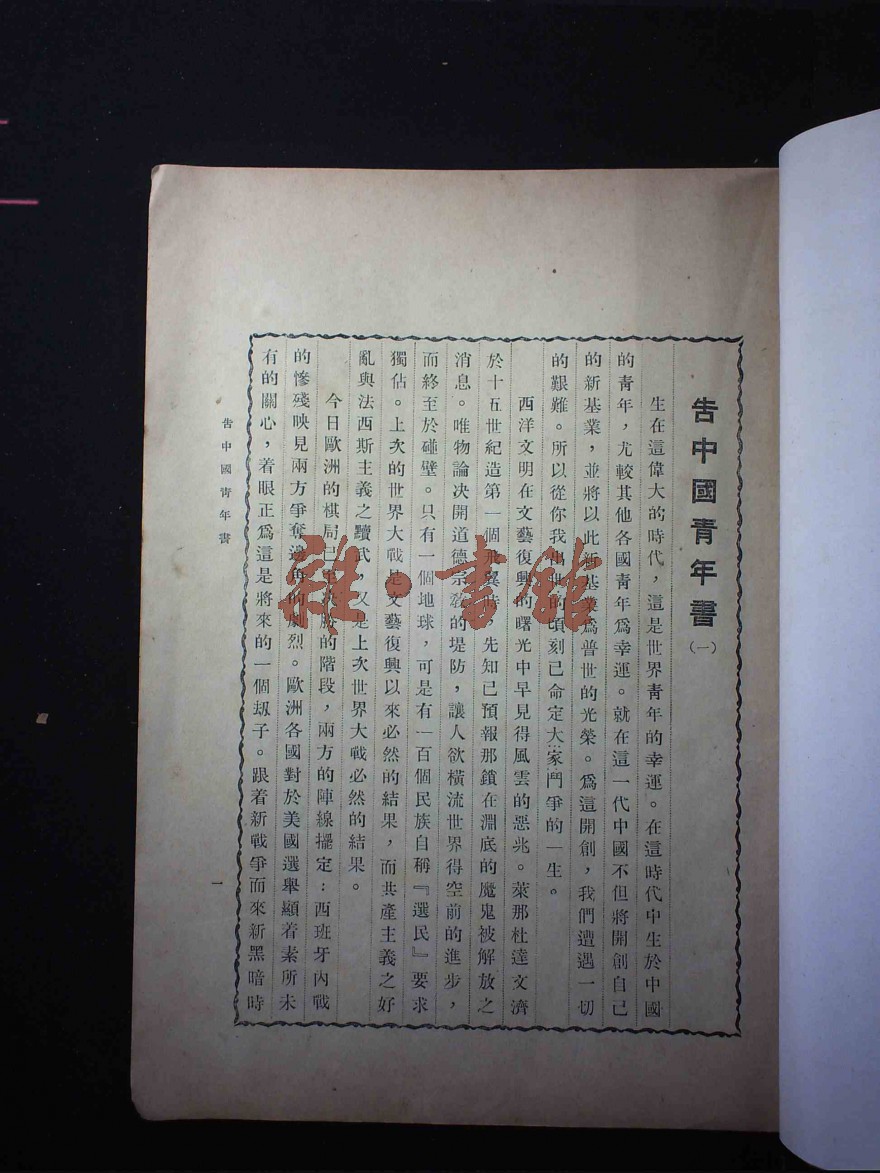 告中國靑年書(一)
生在這偉大的時代，這是世界靑年的幸運。在這時代中生於中國
的靑年，尤較其他各國靑年爲幸運。就在這一代中國不但將開創自己
的新基業，並將以此新基業爲普世的光榮。爲這開創，我們遭遇一切
的艱難。所以從你我出世的頃刻已命定大家鬥爭的一生。
西洋文明在文藝復興的曙光中早見得風雲的惡兆。萊那杜達文濟
於十五世紀造第一個飛翼時，先知已預報那鎖在淵底的魔鬼被解放之
消息。唯物論決開道德宗敎的堤防，讓人欲橫流世界得空前的進步，
而終至於碰壁。只有一個地球，可是有一百個民族自稱『選民』要求
獨佔。上次的世界大戰是文藝復興以來必然的結果，而共產主義之好
亂與法西斯主義之黷武，又是上次世界大戰必然的結果。
今日歐洲的棋局已至決勝的階段，兩方的陣線擺定：西班牙內戰
的慘殘映見兩方爭奪邊角的劇烈。歐洲各國對於美國選舉顯着素所未
有的關心，着眼正爲這是將來的一個刼子。跟着新戰爭而來新黑暗時
告中國靑年書
一
雜·書館